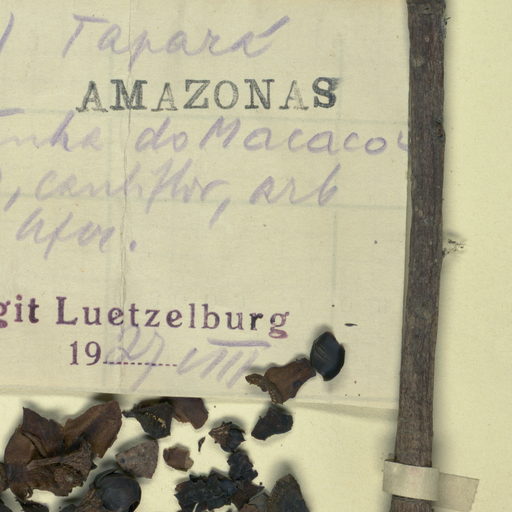 ) Tapará
AMAZONAS
inha do Macaco
, cauliflor, arb
git Luetzelburg
1927 VIII